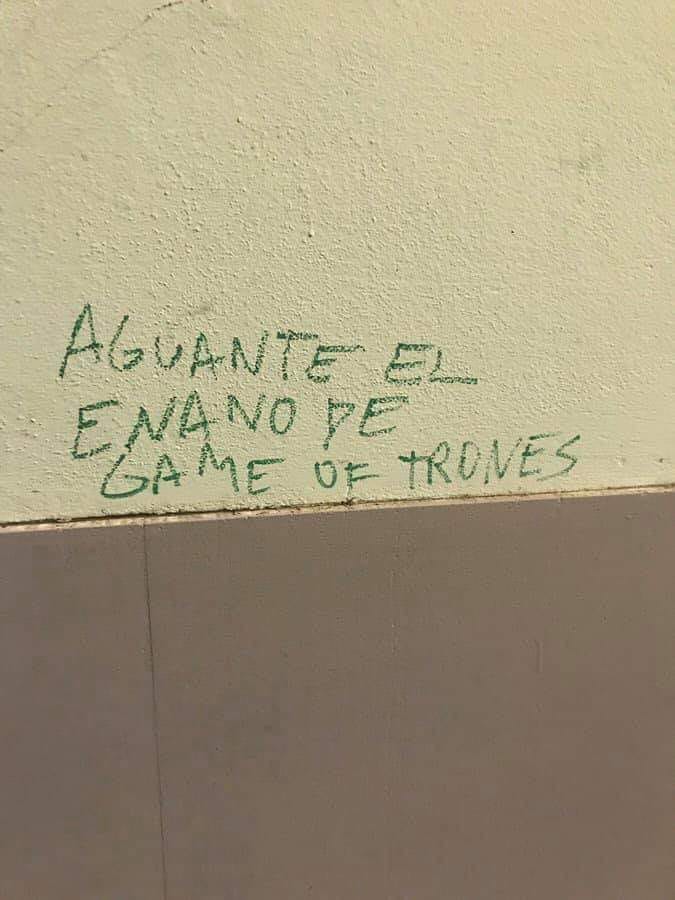 AGUANTE EL
ENANO DE
GAME OF TRONES